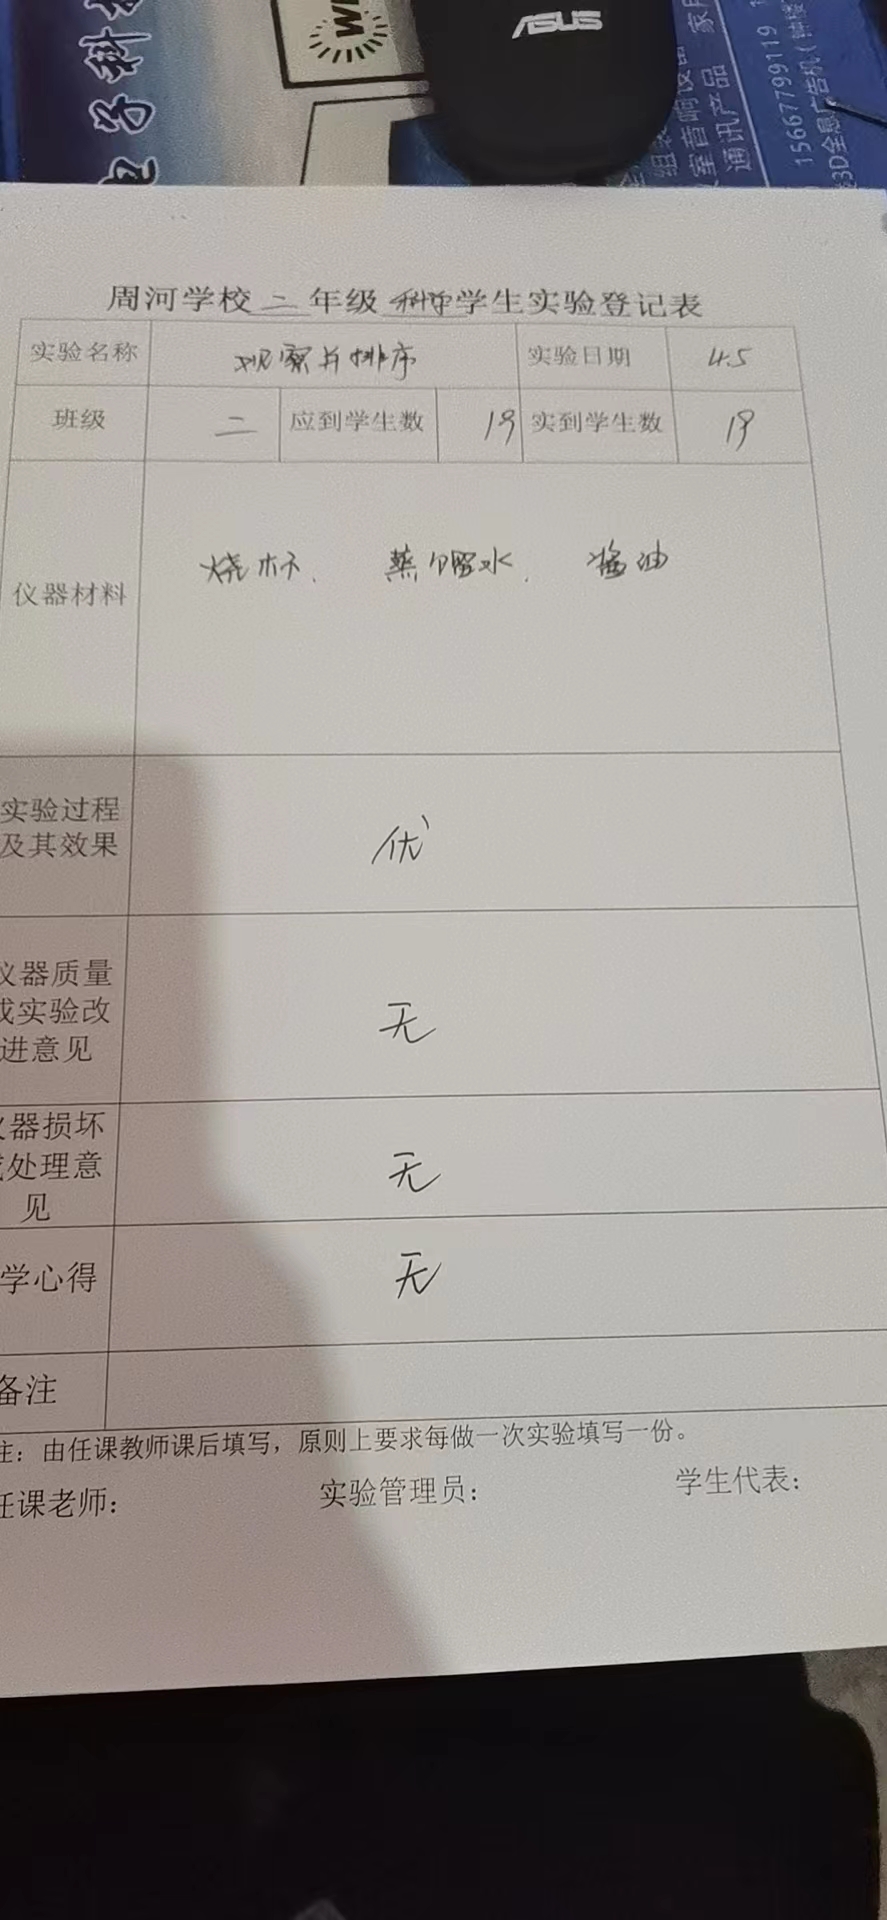 电子科
ASUS
通讯产品
15667799119
3D全息广告机(钟楼
周河学校 二 年级 科学 学生实验登记表
实验名称 观察并排序 实验日期 4.5
班级 二 应到学生数 19 实到学生数 19
仪器材料 烧杯、 蒸馏水、 酱油
实验过程
及其效果
优
仪器质量
或实验改
进意见
无
仪器损坏
或处理意
见
无
学心得 无
备注
注：由任课教师课后填写，原则上要求每做一次实验填写一份。
任课老师： 实验管理员： 学生代表：